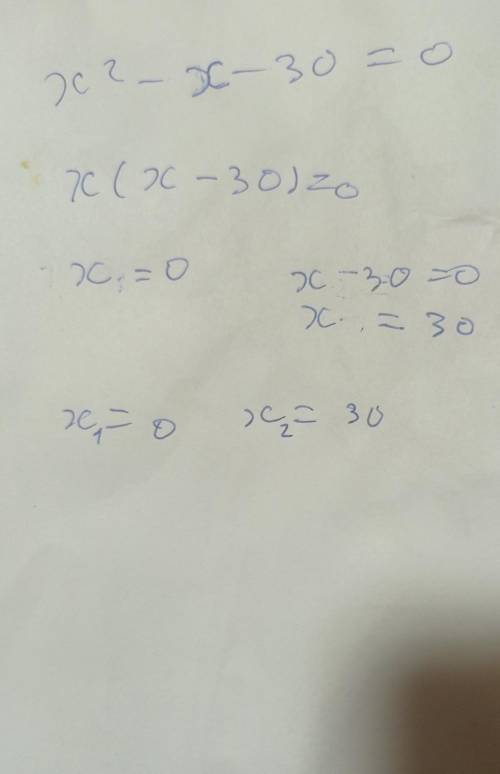 x² - x - 30 = 0
x(x - 30) = 0
x = 0 x - 30 = 0
x = 30
x₁ = 0 x₂ = 30